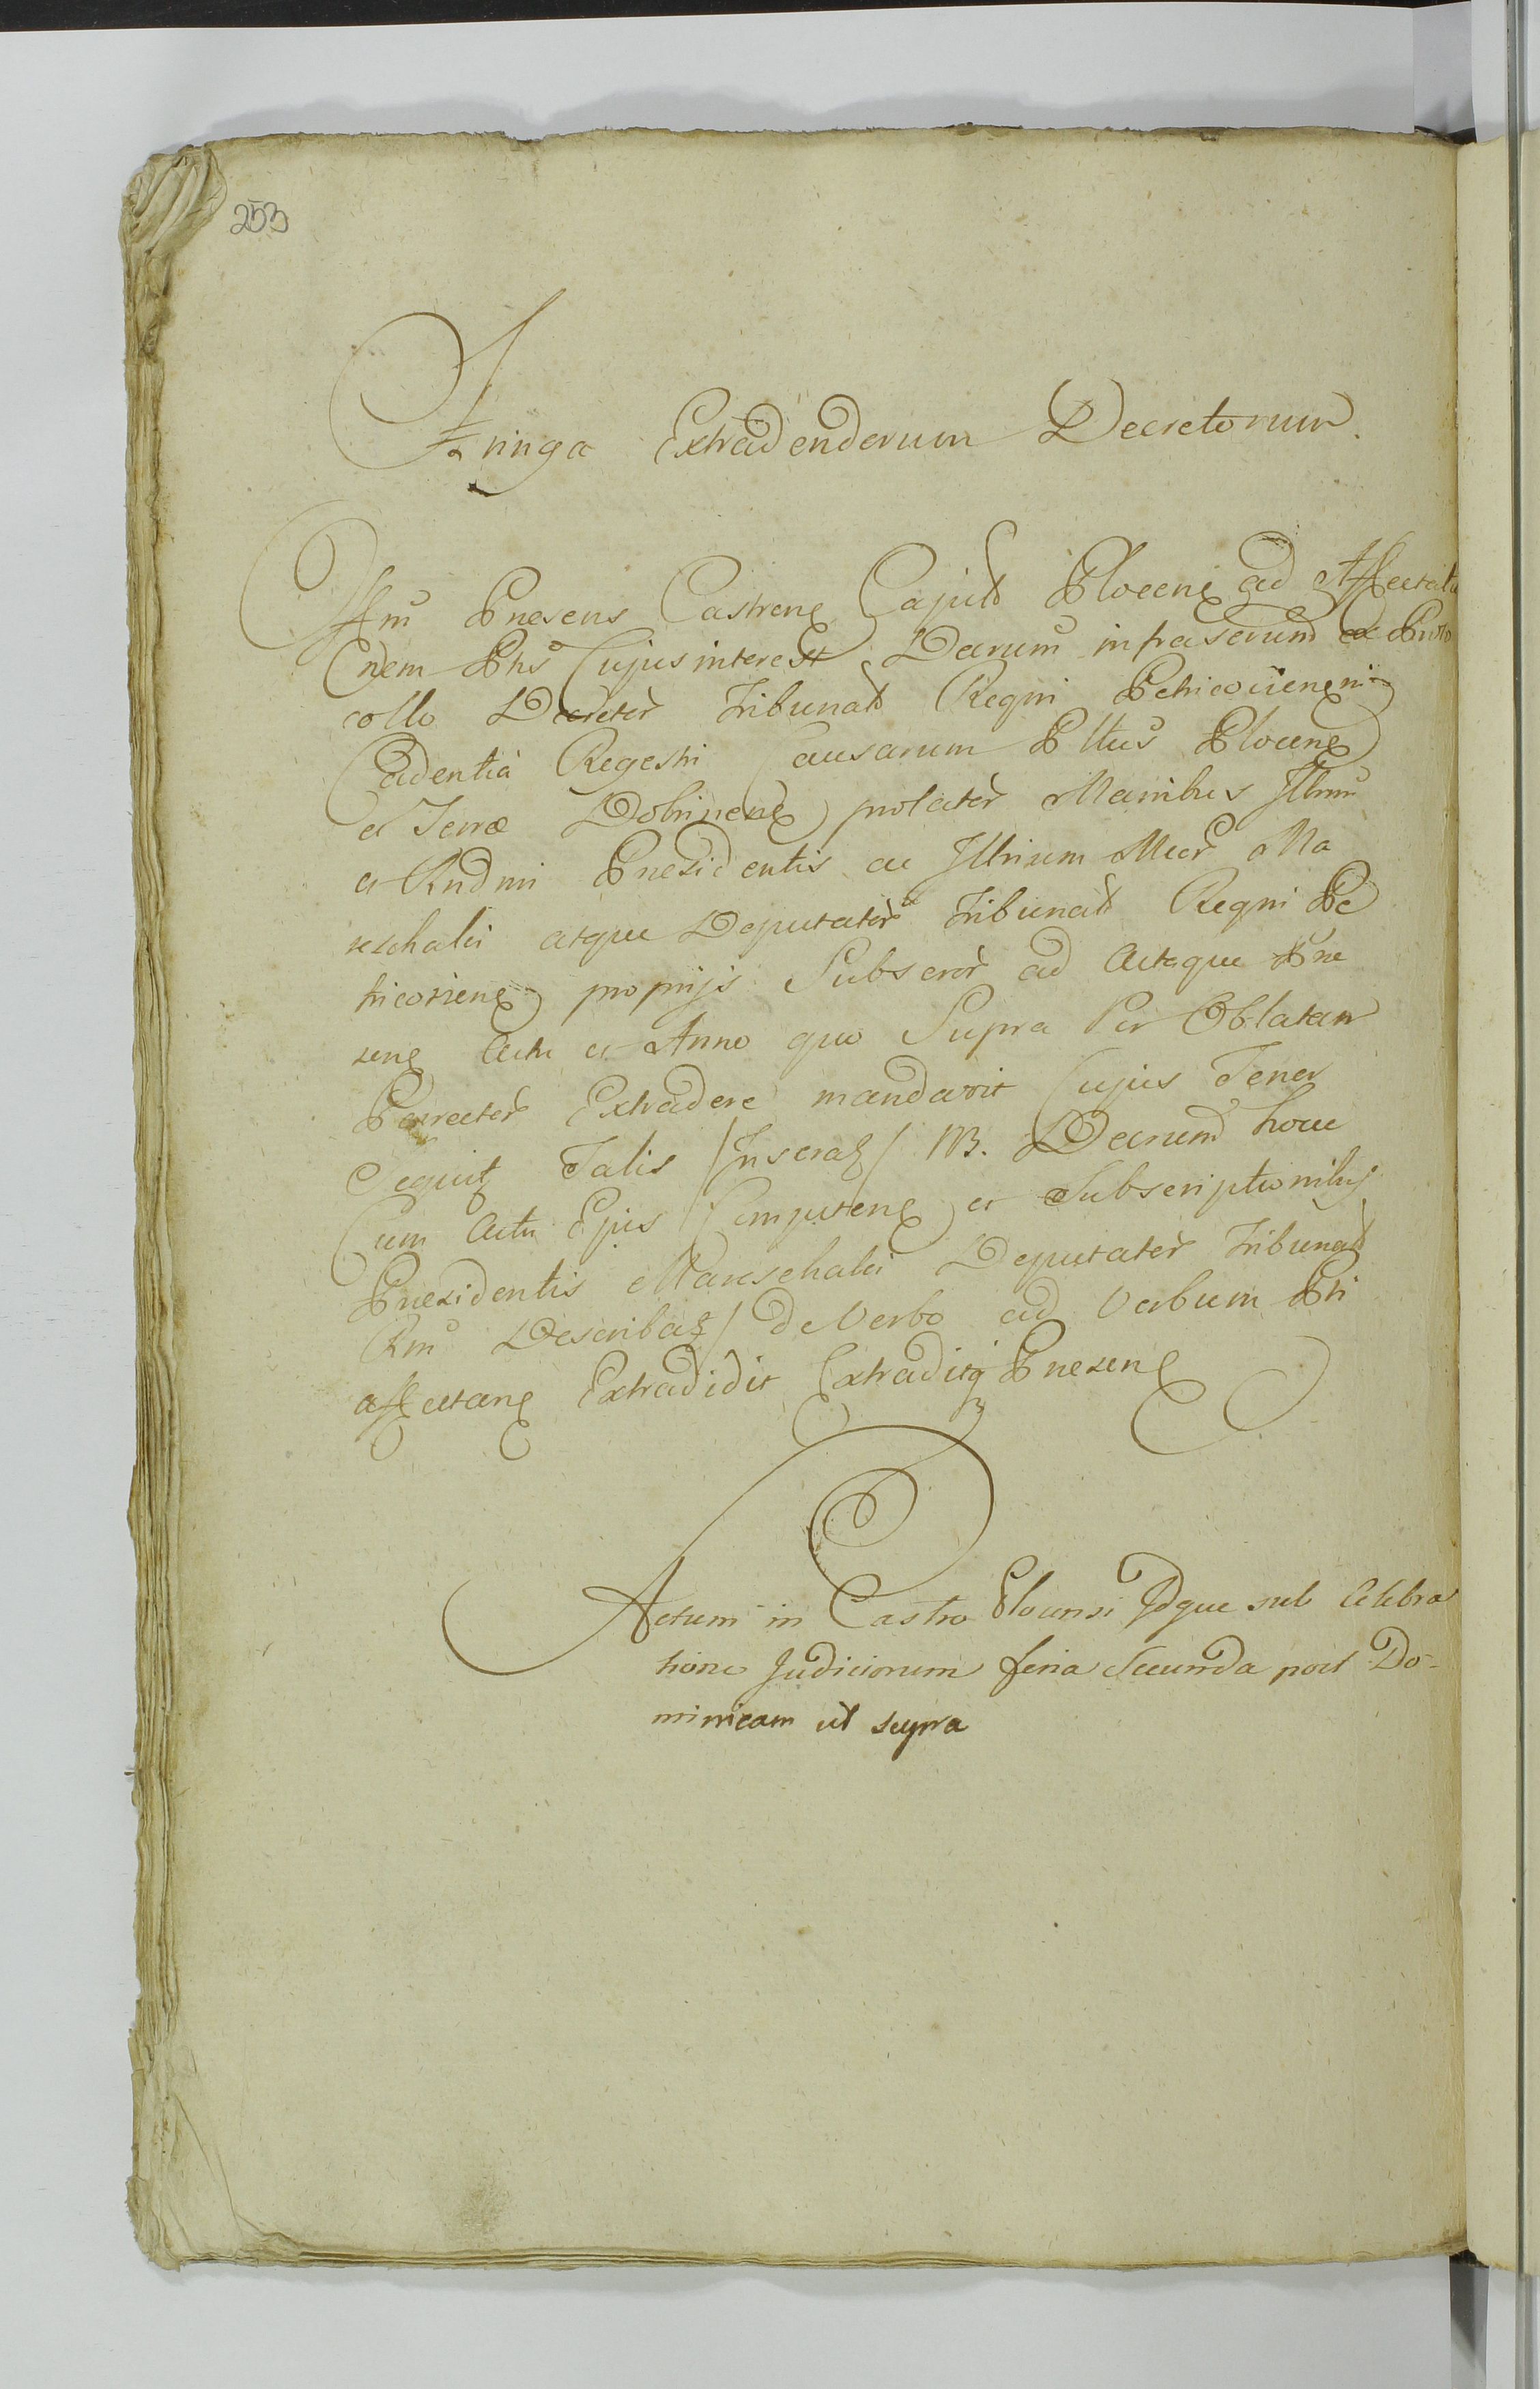 253
Aringa Extradendorum Decretorum.
Offm̃ Præsens Castrenẽ Capitł Plocenẽ ad Affectatio
nem Ptis Cujus interest Decrum̃ infrascrum̃ ex Proto
collo Decretor̃ Tribunał Regni Petricoviensi in
Cadentia Regestri Causarum Pltus Plocenẽ
et Terræ Dobrinenẽ prolator̃ Manibus Illrmi
et Rndmi Præsidentis ac Illrium Mcor̃ Ma
reschalci atque Deputator̃ Tribunał Regni Pe
tricovienẽ proprijs Subscror̃ ad Actaque Præ
senẽ Actu et Anno quo Supra Per Oblatam
Porrector̃ Extradere mandavit Cujus Tenor
Sequit̃ Talis /Inserat̃/ NB. Decrum̃ hocce
Cum Actu Ejus Computenẽ et Subscriptionibus
Præsidentis Mareschalci Deputator̃ Tribunał
Rm̃ Describat̃/ de Verbo ad Verbum Pti
affectanẽ Extradidit Extraditq̃ Præsenẽ
Actum in Castro Plocensi Idque sub Celebra
tione Judiciorum feria Secunda post Do-
minicam ut supra